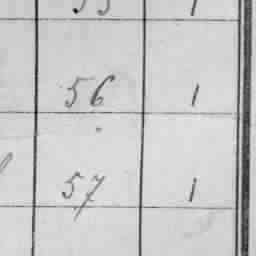 55 1
56 1
57 1